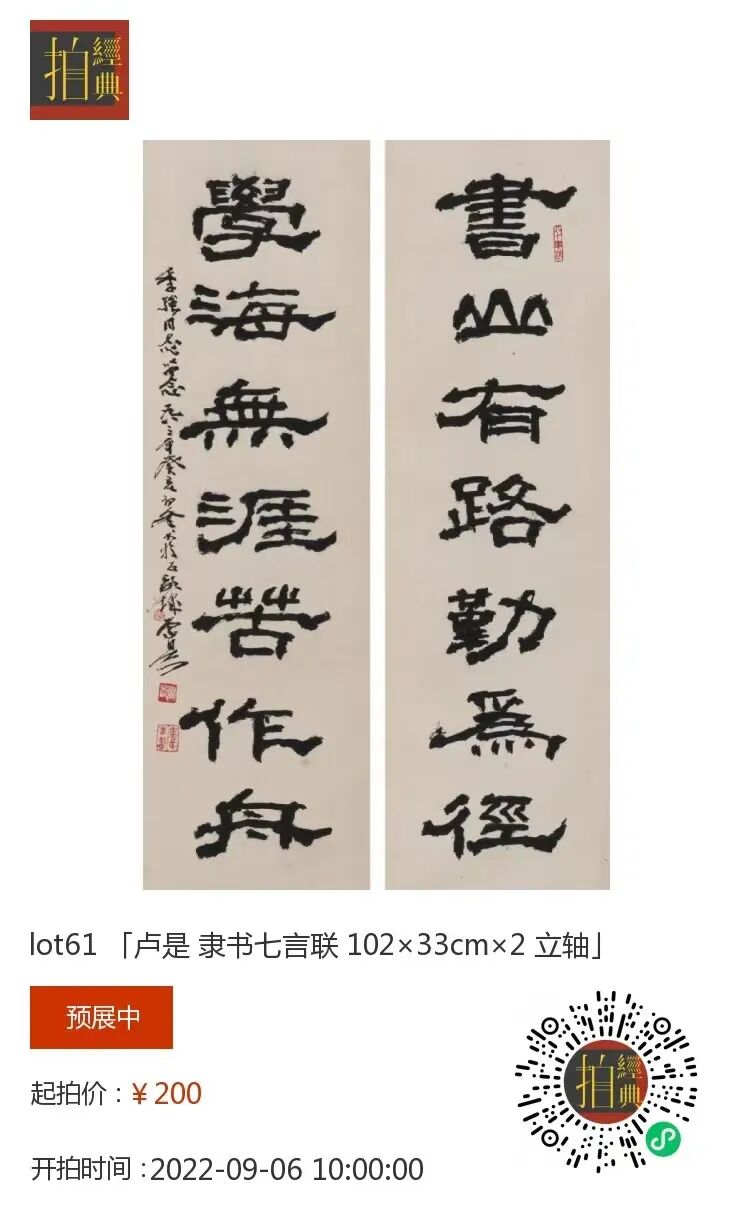 經典
拍
書山有路勤為徑
學海無涯苦作舟
lot61 「卢是 隶书七言联 102×33cm×2 立轴」
预展中
起拍价：¥200
开拍时间：2022-09-06 10:00:00
經典
拍